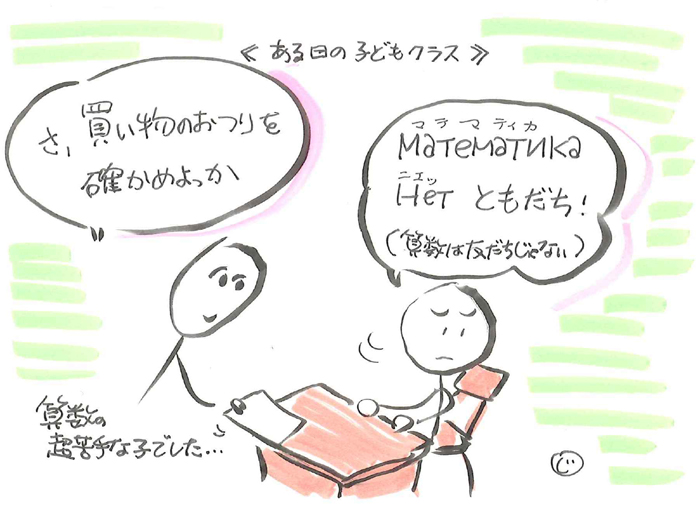 ≪ ある日の子どもクラス ≫
さ、買い物のおつりを
確かめよっか
マテマティカ
Математика
ニエッ
Нет ともだち!
(算数は友だちじゃない)
算数の
超苦手な子でした...